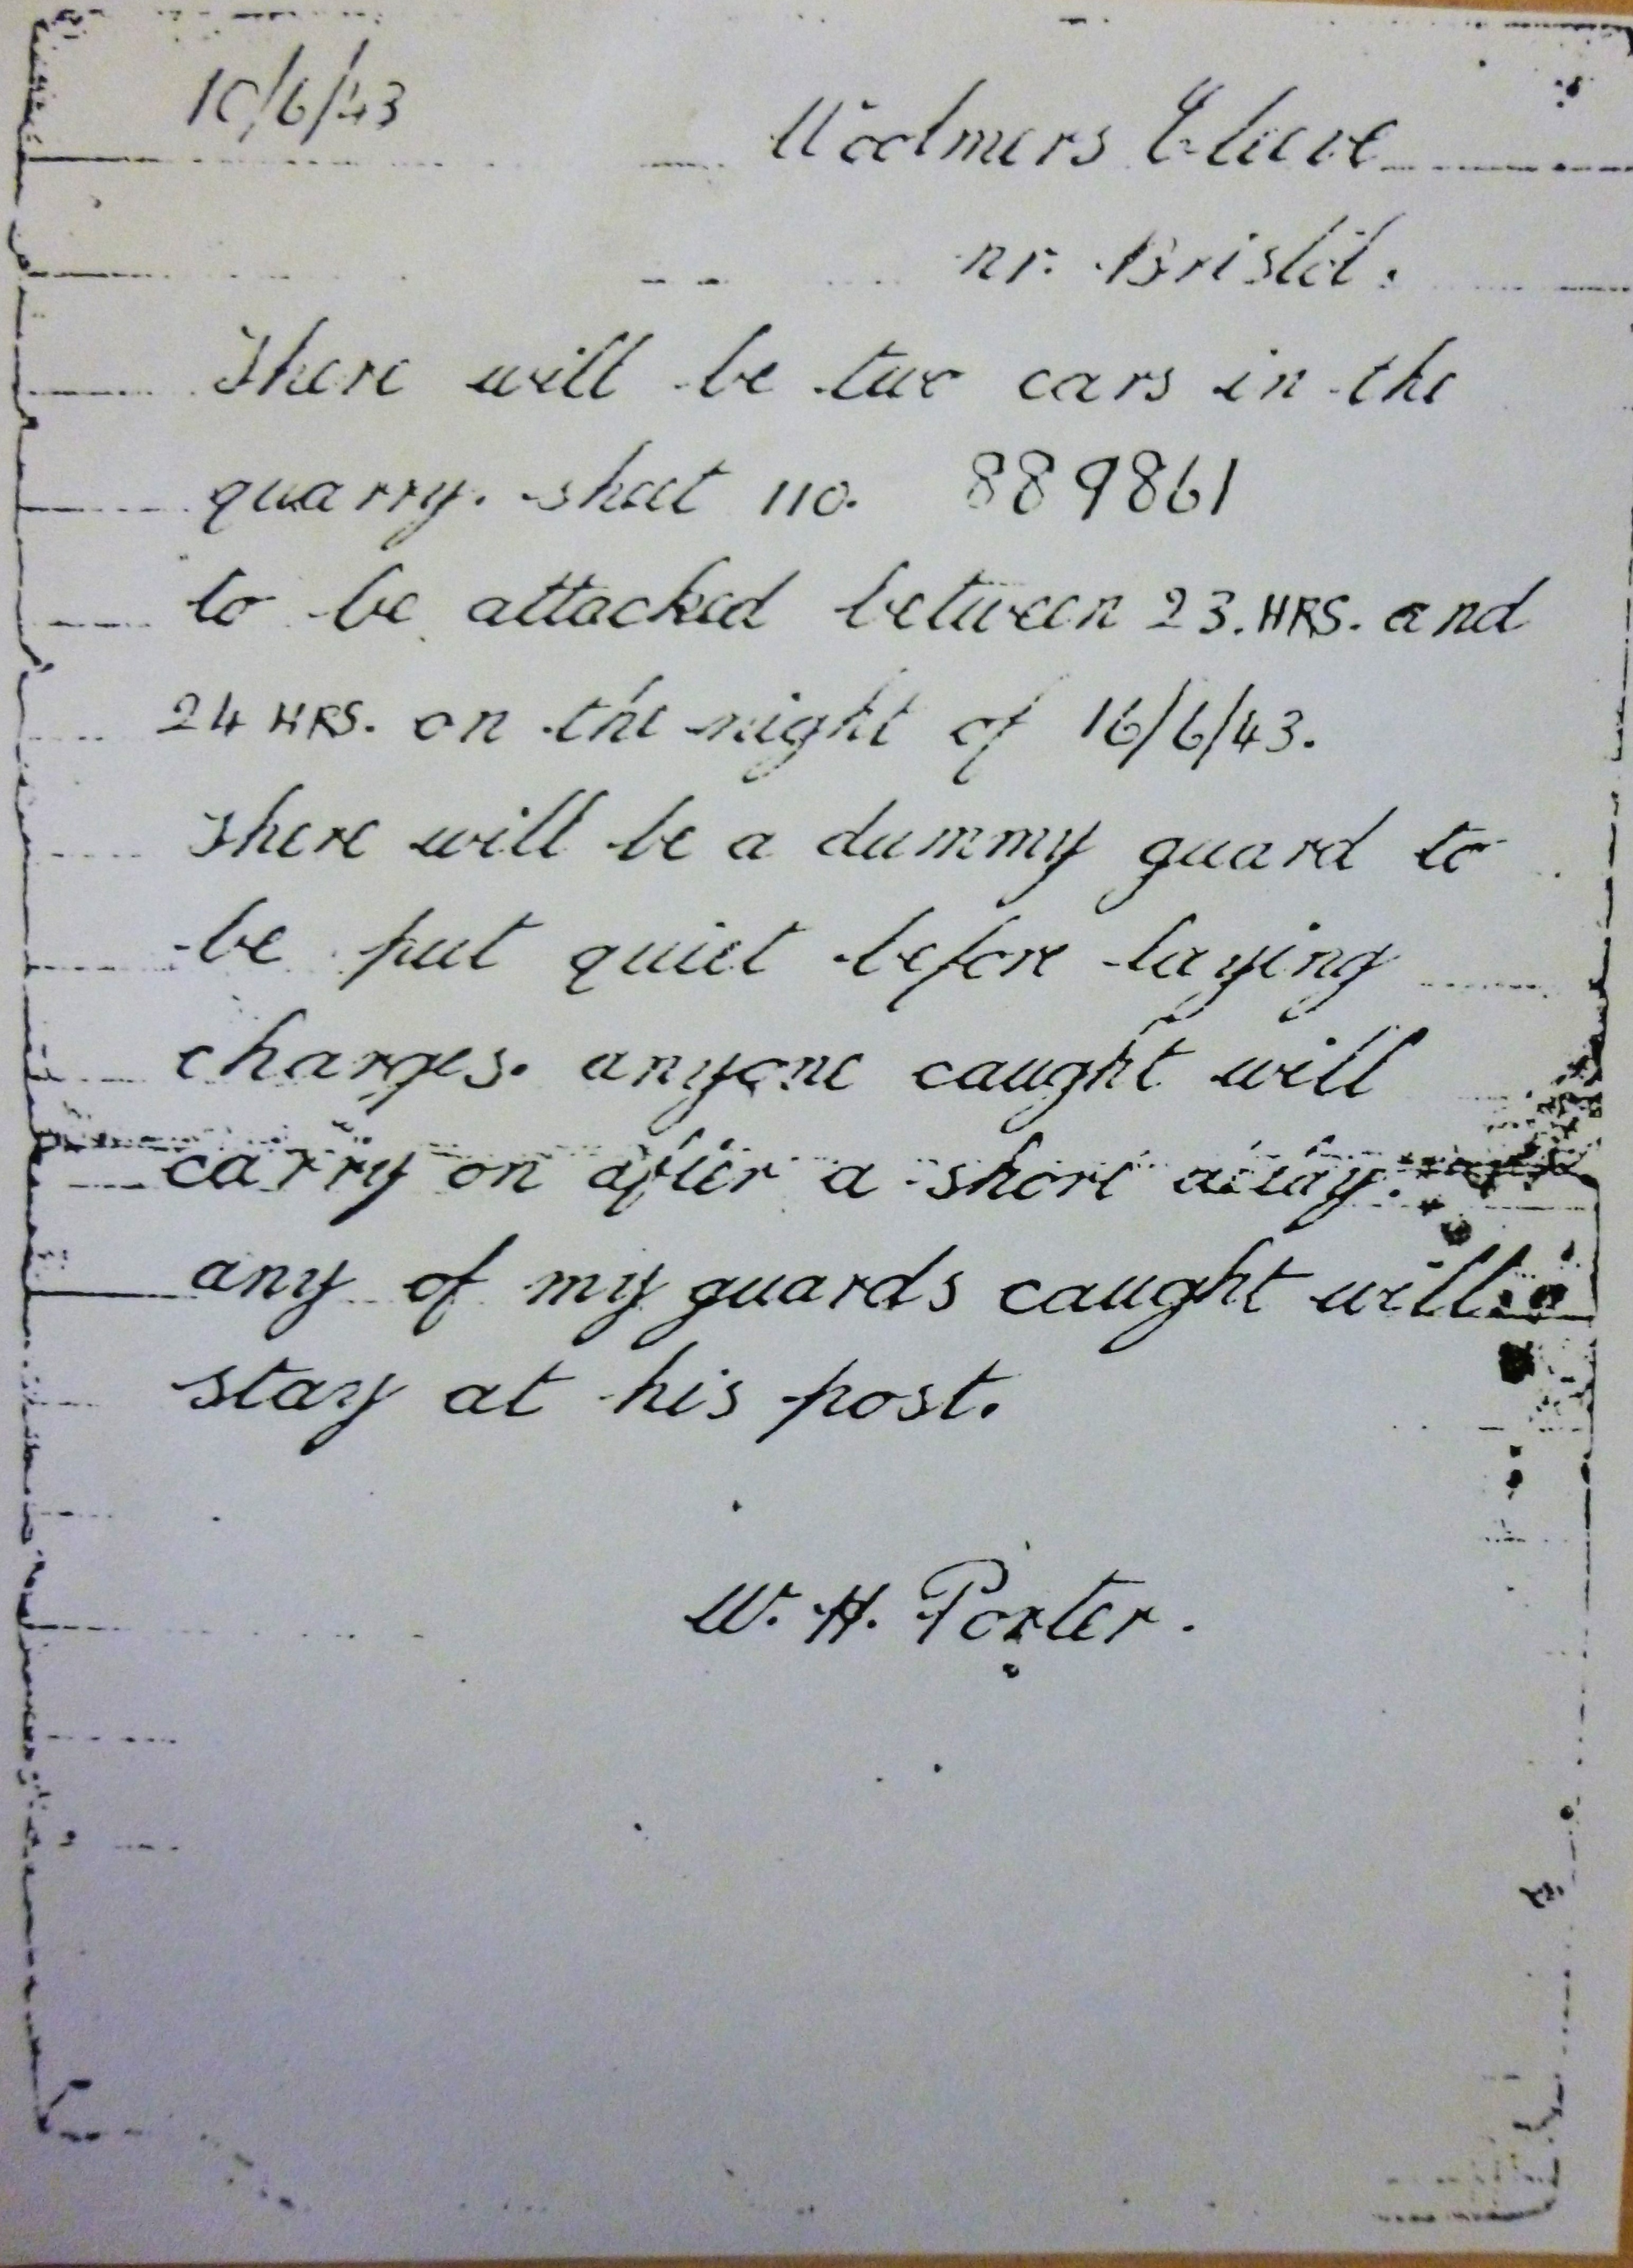 10/6/43
Woolmers Cleeve
nr. Bristol.
There will be two cars in the
quarry. sheet 110. 889861
to be attacked between 23.HRS. and
24 HRS. on the night of 16/6/43.
There will be a dummy guard to
be put quiet before laying
charges. anyone caught will
carry on after a short delay.
any of my guards caught will
stay at his post.
W. H. Porter.